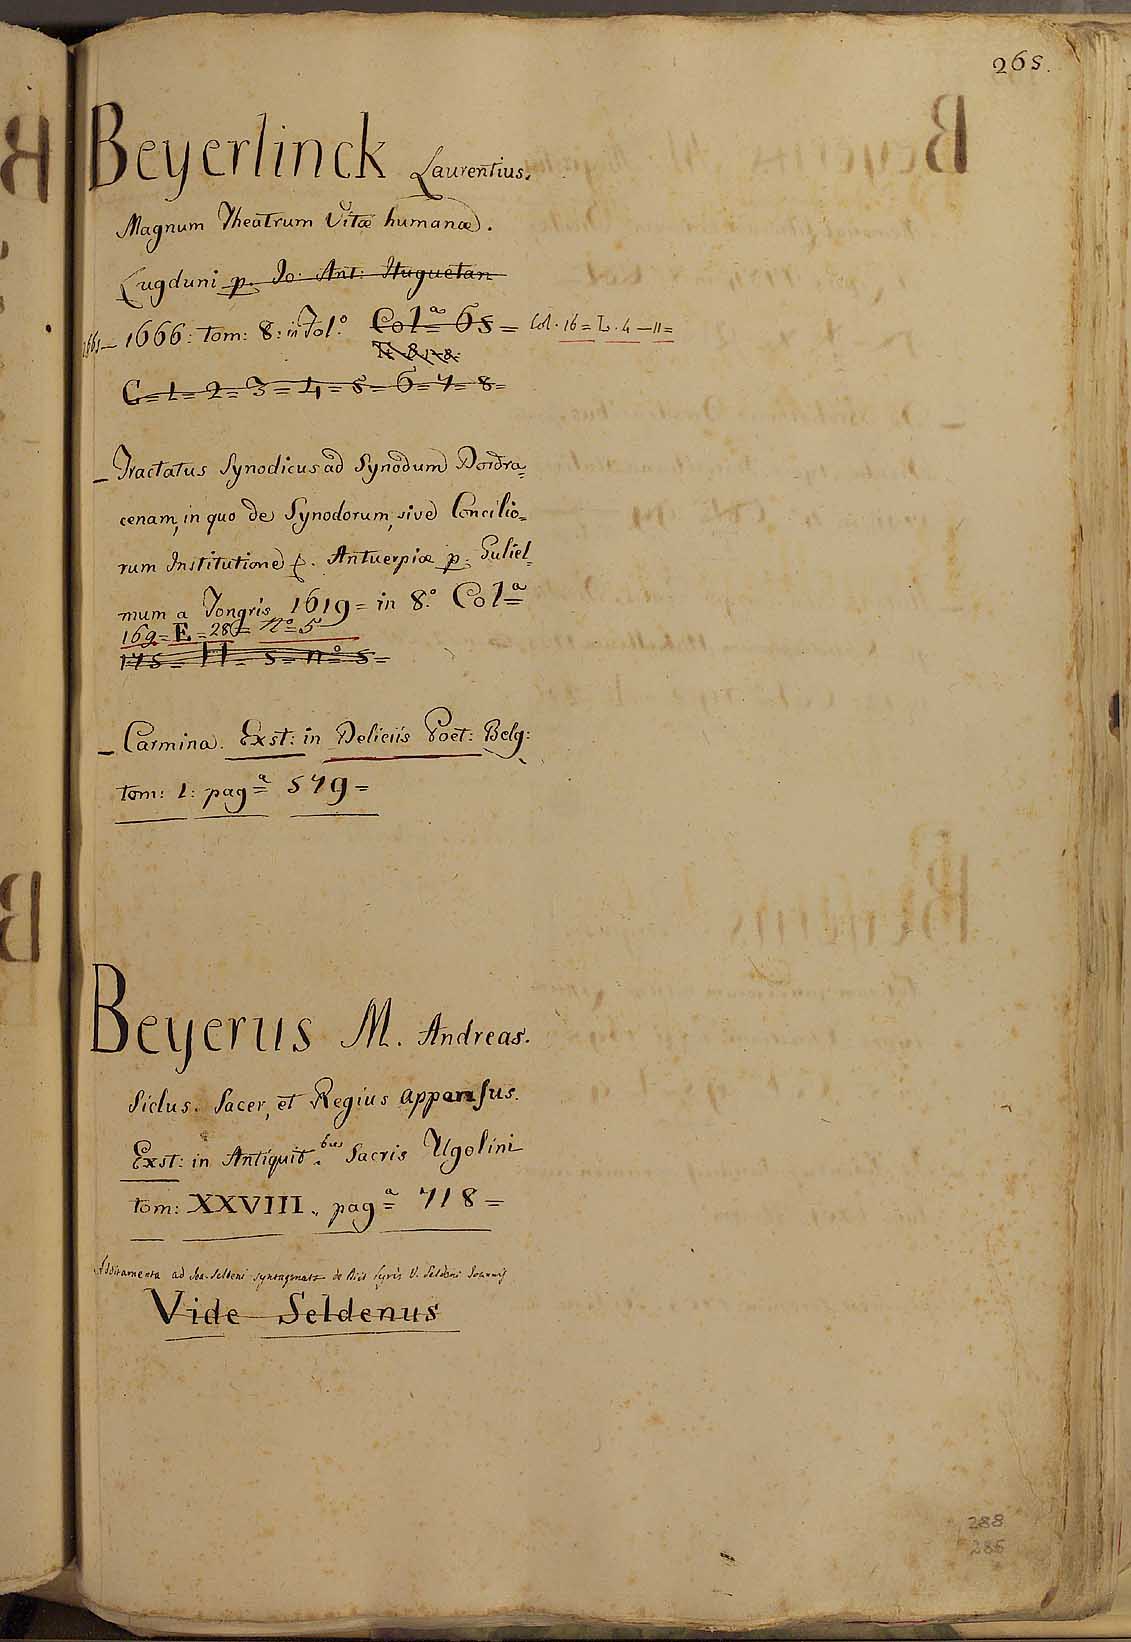 265.
Beyerlinck Laurentius.
Magnum Theatrum Vitæ humanæ.
Lugduni p. Io: Ant: Huguetan
1665 — 1666: tom: 8: in Fol.º Colª 65 = Col. 16 = L. 4 — 11 =
C = 1 = 2 = 3 = 4 = 5 = 6 = 7 = 8 =
— Tractatus Synodicus ad Synodum Dordra=
cenam, in quo de Synodorum, sive Concilio=
rum Institutione &. Antuerpiæ p: Guliel
mum a Tongris 1619 = in 8.º Colª
169 = E = 286 = Nº 5
175 = H = 5 = nº 5 =
— Carmina. Exst: in Deliciis Poet: Belg:
tom: 1: pagª 579 =
Beyerus M. Andreas.
Siclus Sacer, et Regius appensus.
Exst: in Antiquit.bus Sacris Ugolini
tom: XXVIII., pagª 718 =
Additamenta ad Ioa. Seldeni syntagmata de Diis Syris V. Seldeni Joannis
Vide Seldenus
288
286